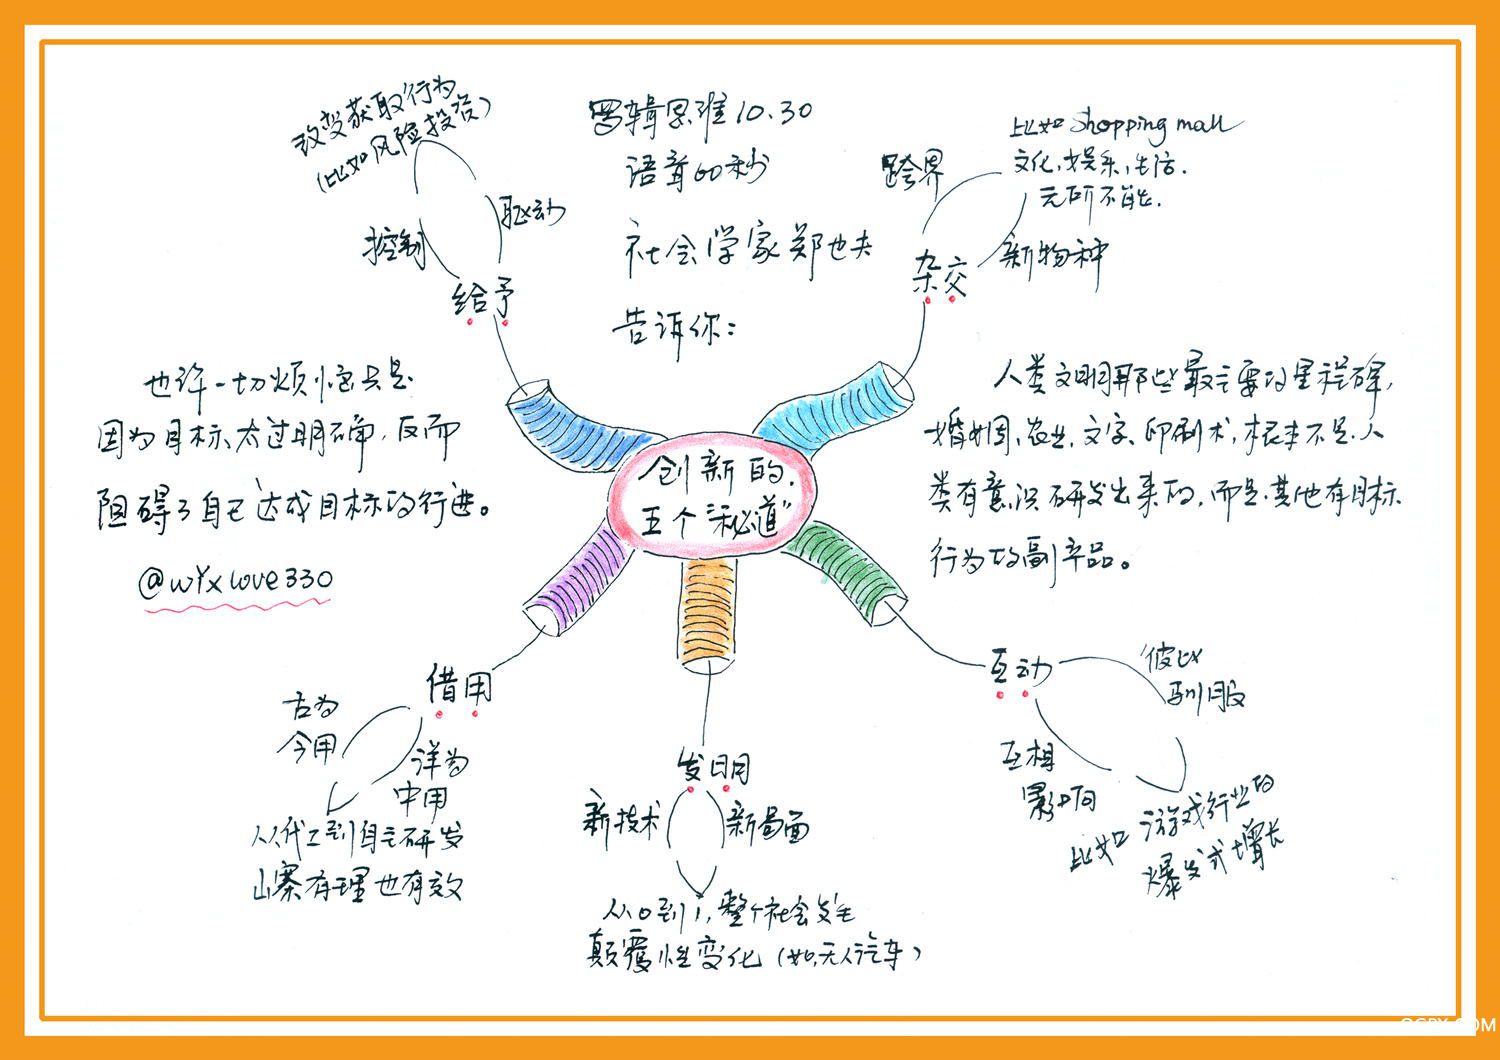 罗辑思维10.30
语音60秒
社会学家郑也夫
告诉你：
创新的
五个"秘道"
给予
控制
驱动
改变获取行为
（比如风险投资）
杂交
跨界
新物种
比如shopping mall
文化、娱乐、生活.
无所不能.
人类文明那些最主要的里程碑,
婚姻、农业、文字、印刷术,根本不是人
类有意识研发出来的,而是其他有目标
行为的副产品。
互动
彼此
驯服
互相
影响
比如 游戏行业的
爆发式增长
发明
新技术
新局面
从0到1,整个社会发生
颠覆性变化（如,无人汽车）
借用
古为
今用
洋为
中用
从代工到自主研发
山寨有理也有效
也许一切烦恼只是
因为目标太过明确,反而
阻碍了自己达成目标的行进。
@wYxlove330